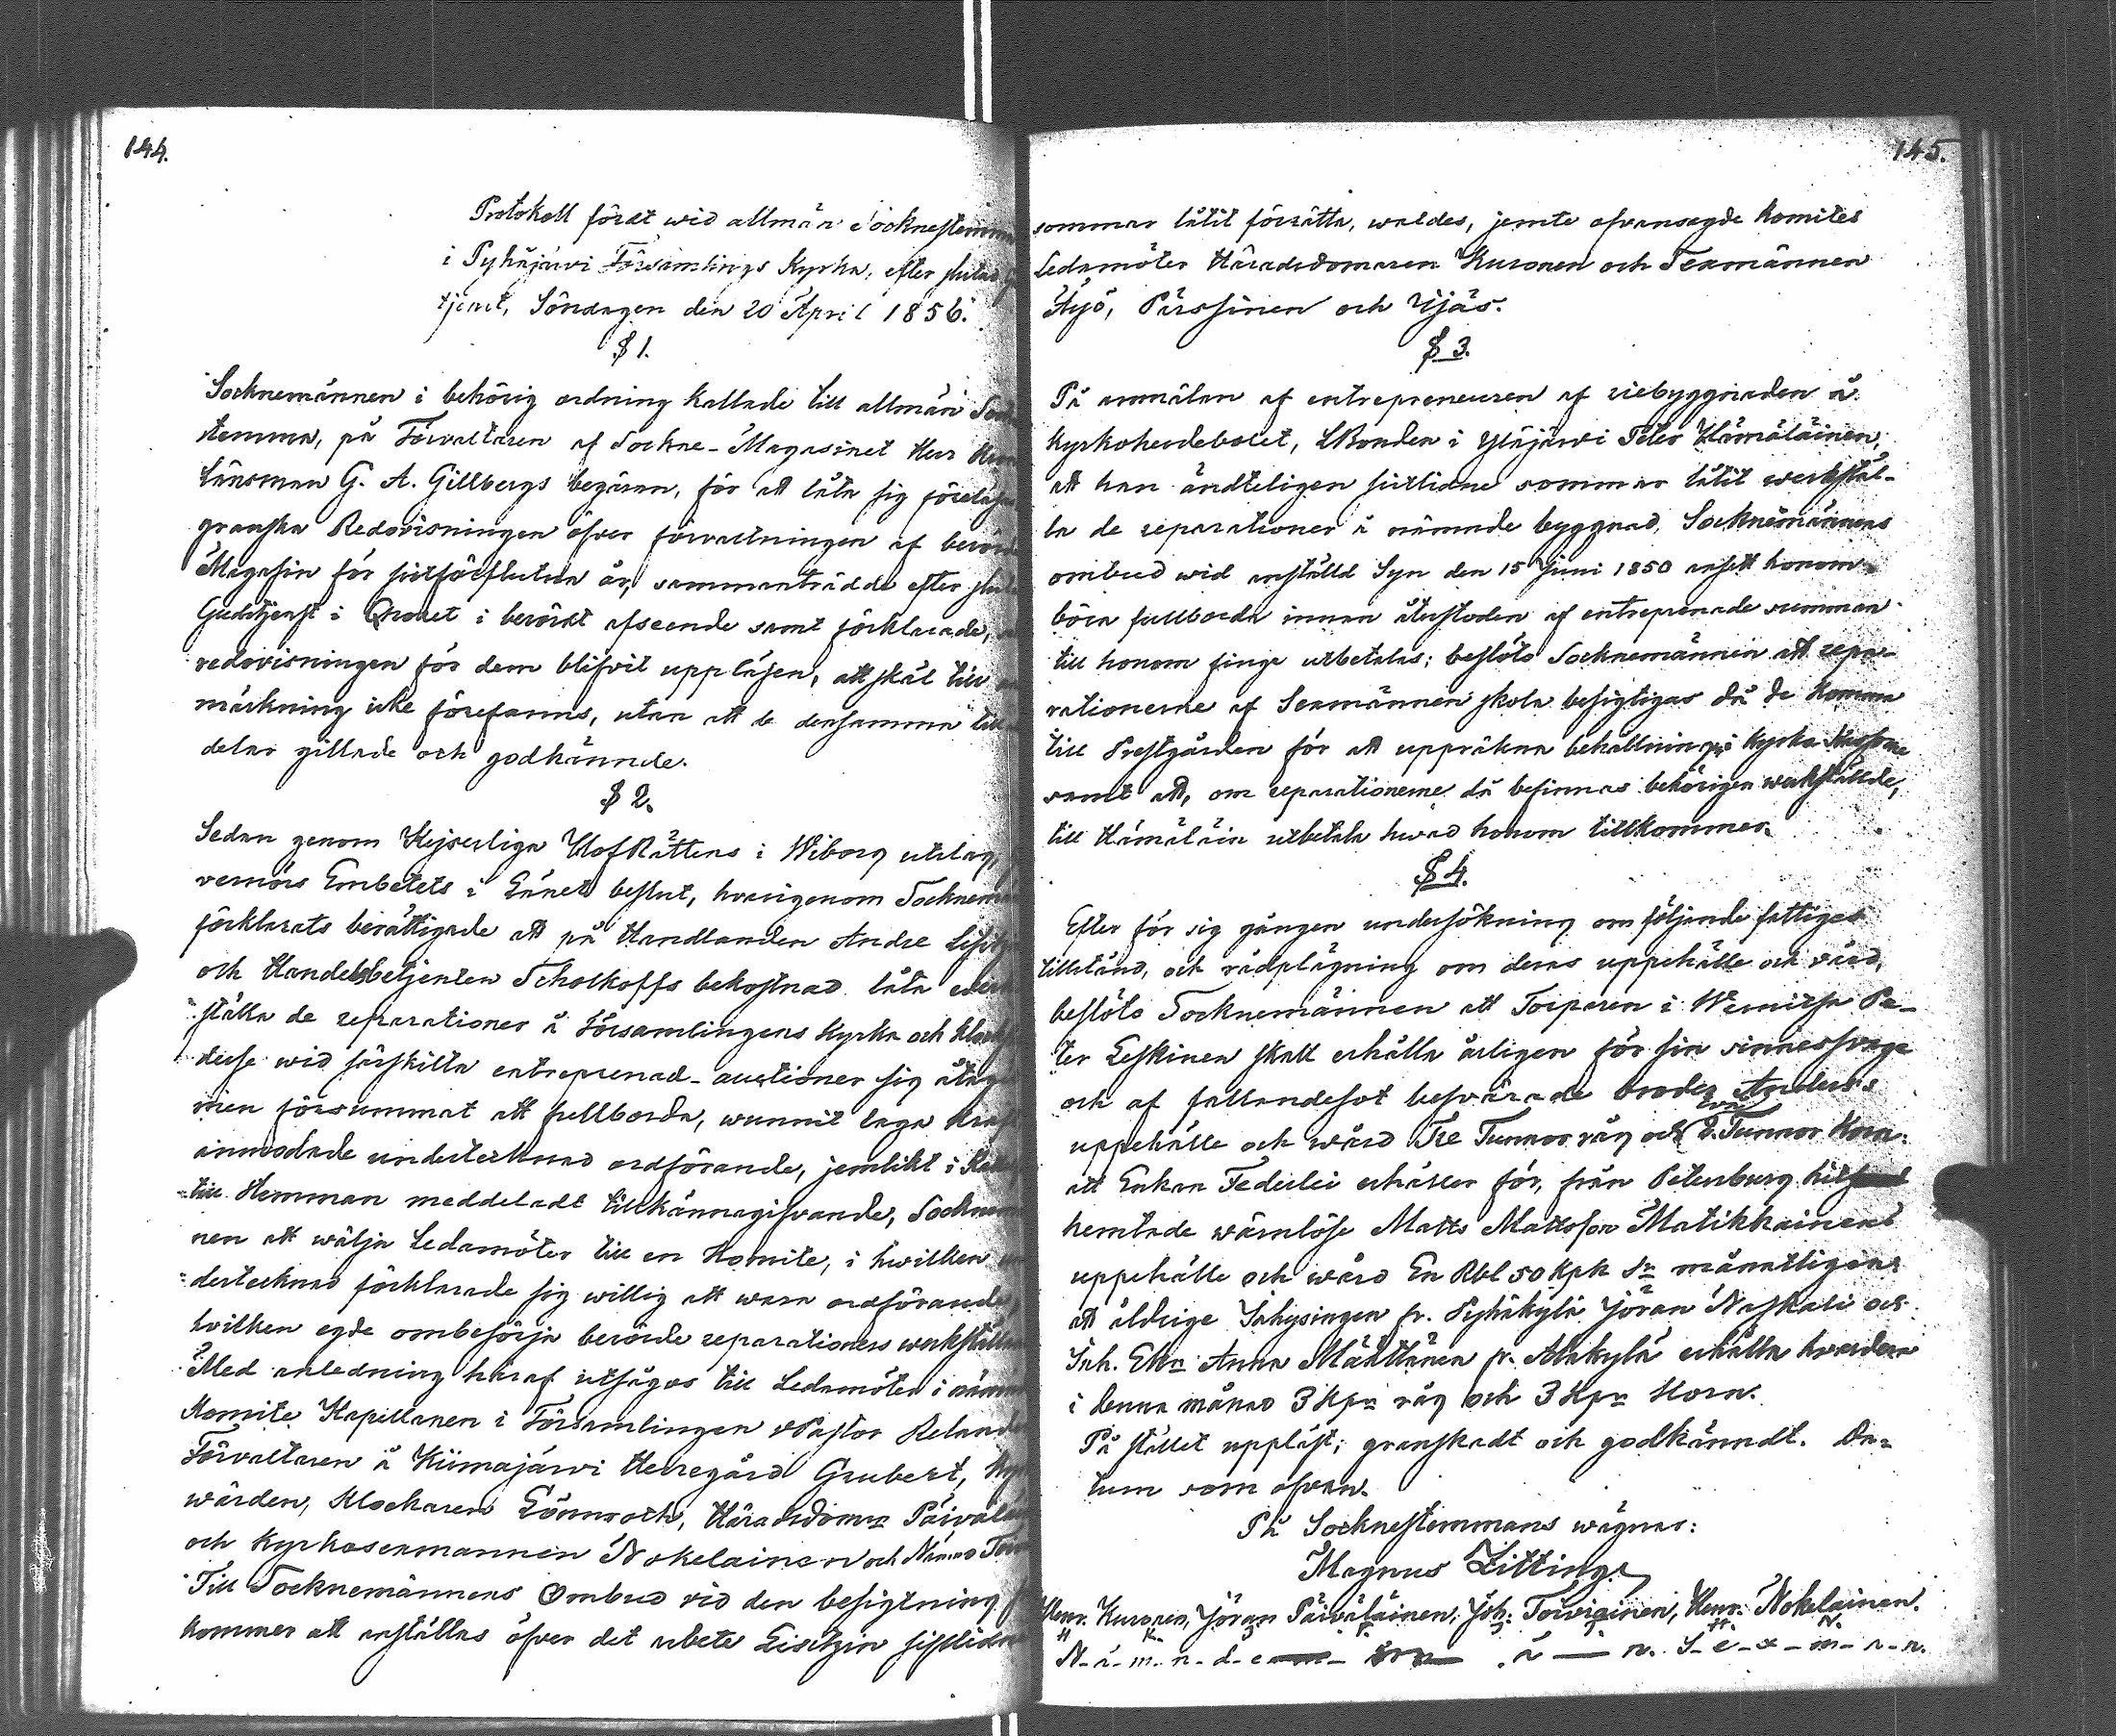 144.
Protokoll fördt wid allmän Socknestemma
i Pyhäjärvi Församlings Kyrka, efter slutad
tjenst, Söndagen den 20 April 1856.
§ 1.
Socknemännen i behörig ordning kallade till allmän
stemma, på Förvaltaren af Sockne-Magasinet Herr
länsman G. A. Gillbergs begäran, för att låta sig föreläsas
granska Redovisningen öfver förvaltningen af berörde
Magasin för sistförflutna år, sammanträdde efter
Gudstjenst i Choret i berördt afseende samt förklarade,
redovisningen för dem blifvit uppläsen, att skäl till
märkning icke förefanns, utan att de densamma till
delar gillade och godkännde.
§ 2.
Sedan genom Kejserliga HofRättens i Wiborg utslag,
vernörs Embetets i Länet beslut, hvarigenom Socknemän
förklarats berättigade att på Handlanden Andre
och Handelsbetjenten Scholkoffs bekostnad låta
ställa de reparationer å Församlingens Kyrka och
desse wid särskilta entreprenad-auctioner sig åtagit
men försummat att fullborda, wunnit laga kraft
anmodade undertecknad ordförande, jemlikt i
till Hemman meddeladt tillkännagifvande, Socknemän
nen att wälja Ledamöter till en Komite, i hwilken
dertecknad förklarade sig willig att wara ordförande,
hvilken egde ombesörja berörde reparationers werkställ
Med anledning häraf utsågos till Ledamöter i nämnde
Komite Kapellanen i Församlingen vPastor Relander
Förvaltaren å Kiimajärvi Herregård Grubert,
wärden, Klockaren Lönnroth, Häradsdomn Päiväläinen
och Kyrkosexmannen Nokelainen och
Till Socknemännens Ombud vid den besigtning
kommer att anställas öfver det arbete Lisitzin sistliden
145.
sommar låtit förrätta, waldes, jemte ofvansagde Komites
Ledamöter Häradsdomaren Kuronen och Sexmännen
Äijö, Pärssinen och Äijäs.
§ 3.
På anmälan af entrepreneuren af riebyggnaden å
kyrkoherdebolet, LBonden i Yläjärwi Peter Hämäläinen,
att han ändteligen sistlidne sommar låtit werkstäl-
la de reparationer å nämnde byggnad, Socknemännens
ombud wid anställd Syn den 15 Juni 1850 ansett honom
böra fullborda innan återstoden af entreprenade summan
till honom finge utbetalas; beslöto Socknemännen att repa-
rationerne af Sexmännen skola besigtigas då de komma
till Prestgården för att uppräkna behållningen i Kyrko Kassorne
samt att, om reparationerne då befinnas behörigen werkställde,
till Hämäläin utbetala hwad honom tillkommer.
§ 4.
Efter för sig gången undersökning om följande fattiges
tillstånd, och rådplägning om deras uppehälle och vård,
beslöto Socknemännen att Torparen i Wernitsa Pe-
ter Leskinen skall erhålla årligen för sin sinnessvage
och af fallandesot besvärade broder Anders
uppehälle och wård Tre Tunnor råg och Två Tunnor Korn.
att Enkan Federlei erhåller för, från Petersburg hit
hemtade wärnlöse Matts Mattsson Matikkainens
uppehälle och wård En Rbl 50 Kpk Sr månatligen.
att åldrige Inhysingen fr. Pyhäkylä Jöran Naskali och
Inh. Enkn Anna Määttänen fr. Alakylä erhålla hvardera
i denna månad 3 Kpr råg och 3 Kpr Korn.
På stället uppläst; granskadt och godkänndt. Da-
tum som ofvan.
På Socknestemmans wägnar:
Magnus Zitting.
Henr. Kuronen, Jöran Päiväläinen, Joh: Torwiainen, Henr. Nokelainen.
N-ä-m-n-d-e-m- ä — n. S-e-x-m-n-n.